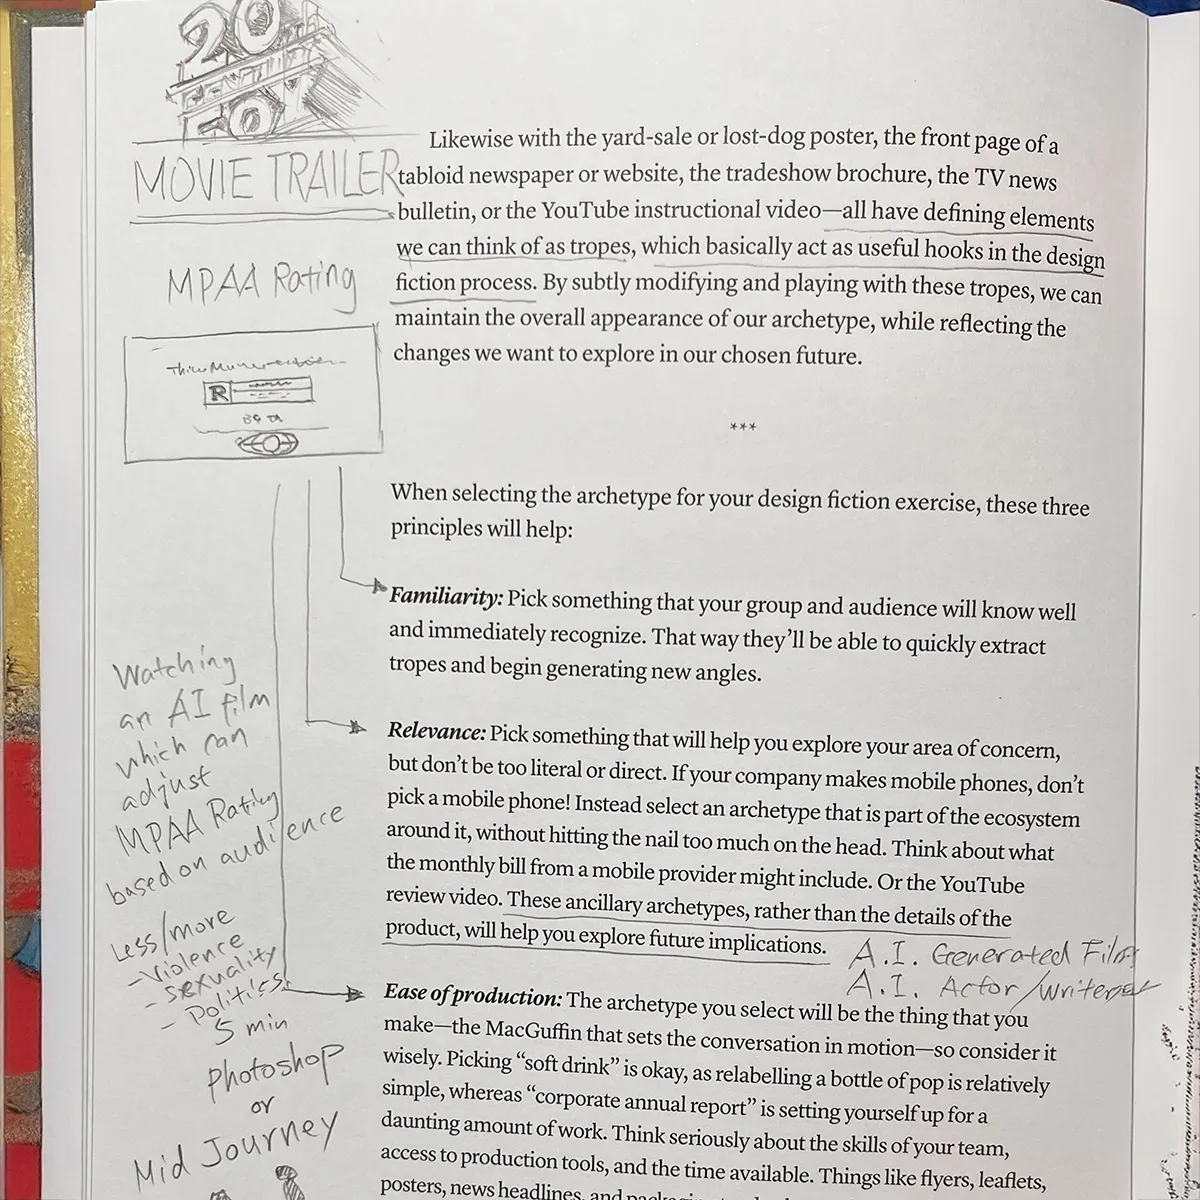 20
CENTURY
FOX
MOVIE TRAILER
MPAA Rating
R
Likewise with the yard-sale or lost-dog poster, the front page of a
tabloid newspaper or website, the tradeshow brochure, the TV news
bulletin, or the YouTube instructional video—all have defining elements
we can think of as tropes, which basically act as useful hooks in the design
fiction process. By subtly modifying and playing with these tropes, we can
maintain the overall appearance of our archetype, while reflecting the
changes we want to explore in our chosen future.
***
When selecting the archetype for your design fiction exercise, these three
principles will help:
Familiarity: Pick something that your group and audience will know well
and immediately recognize. That way they’ll be able to quickly extract
tropes and begin generating new angles.
Watching
an AI film
which can
adjust
MPAA Rating
based on audience
Less/more
- Violence
- sexuality
- politics
Relevance: Pick something that will help you explore your area of concern,
but don’t be too literal or direct. If your company makes mobile phones, don’t
pick a mobile phone! Instead select an archetype that is part of the ecosystem
around it, without hitting the nail too much on the head. Think about what
the monthly bill from a mobile provider might include. Or the YouTube
review video. These ancillary archetypes, rather than the details of the
product, will help you explore future implications.
A.I. Generated Film
A.I. Actor/writer
5 min
Photoshop
or
Mid Journey
Ease of production: The archetype you select will be the thing that you
make—the MacGuffin that sets the conversation in motion—so consider it
wisely. Picking “soft drink” is okay, as relabelling a bottle of pop is relatively
simple, whereas “corporate annual report” is setting yourself up for a
daunting amount of work. Think seriously about the skills of your team,
access to production tools, and the time available. Things like flyers, leaflets,
posters, news headlines, and